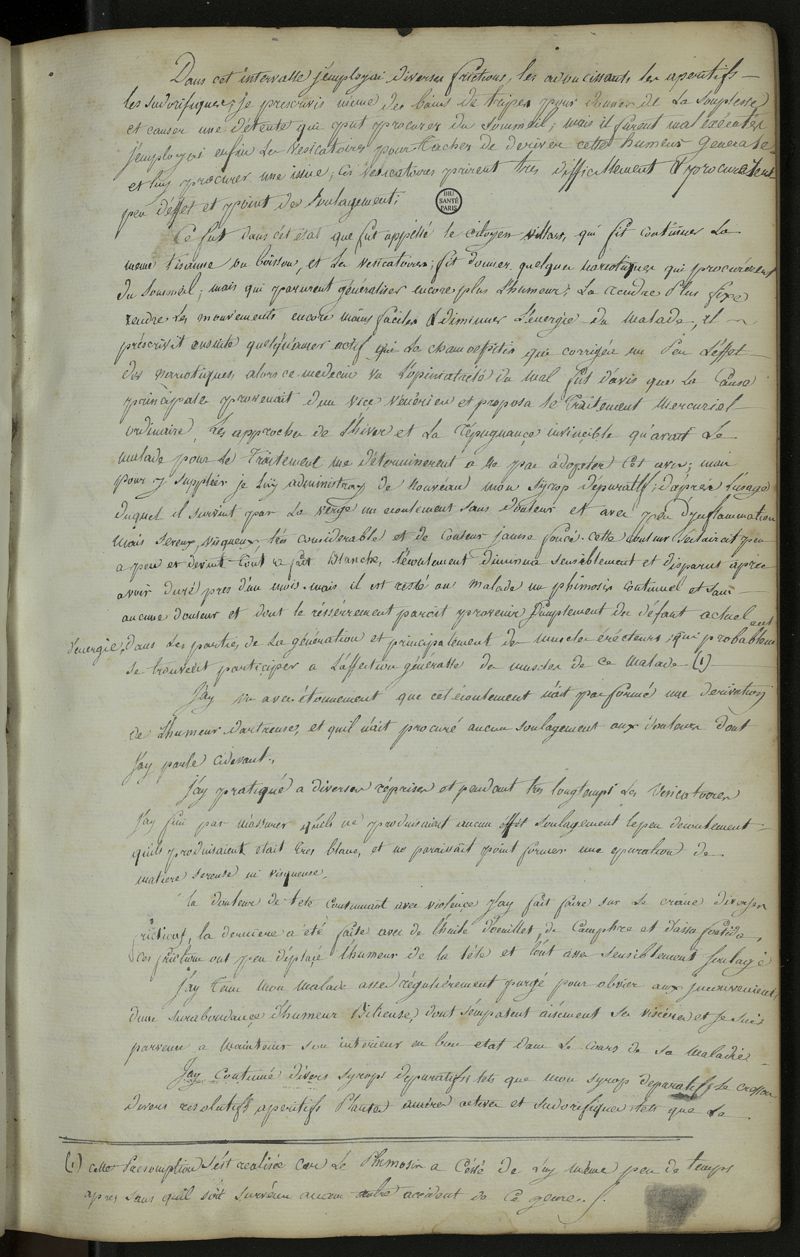 Dans cet intervalle j'employai diverses frictions, les adoucissants les aperitifs
les sudorifiques; je prescrivis meme des bains de tripes pour donner de la souplesse
et causer une détente qui put procurer du sommeil; mais ils furent mal executés
j'employai enfin les vesicatoires pour tacher de deriver cette humeur generale
et luy procurer une issue; ces vesicatoires prirent tres difficilement & procurerent
peu d'effet et point de soulagement;
BIU
SANTÉ
PARIS
Ce fut dans cet état que fut appellé le citoyen villars, qui fit continuer la
meme tisanne ou boisson, et les vesicatoires; fit donner quelques narcotiques qui procurerent
du sommeil; mais qui parurent généraliser encore plus l'humeur; la rendre plus fixe
rendre les mouvements encore moins faciles & diminuer l'energie du malade, il
préscrivit ensuite quelqu'amer actif la chamoepitis qui corrigea un peu l'effet
des narcotiques, alors ce medecin vu l'opiniatreté du mal fut d'avis que la cause
principale provenait d'un vice vénérien et proposa le traitement mercuriel
ordinaire, les approches de l'hiver et la répugnance invincible qu'avait le
malade pour le traitement me déterminerent a ne pas adopter cet avis; mais
pour y suppléer je luy administray de nouveau mon syrop dépuratif; d'après l'usage
duquel il survint par la verge un ecoulement sans douleur et avec peu d'inflammation
mais sereux, visqueux, tres considerable et de couleur jaune foncé. cette couleur s'eclaircit peu
a peu et devint tout a fait blanche, l'écoulement diminua sensiblement et disparut apres
avoir duré pres d'un mois. mais il est resté au malade un phimosis continuel et sans
aucune douleur et dont le résserrement paroit provenir simplement du défaut actuel
d'energie, dans les parties de la génération et principalement des muscles érécteurs qui probablement
se trouvent participer a l'affection généralle des muscles de ce malade (1)
J'ay vu avec étonnement que cet écoulement n'ait pas formé une derivation
de l'humeur dartreuse, et qu'il n'ait procuré aucun soulagement aux douleurs dont
j'ay parlé cidevant.
J'ay pratiqué a diverses réprises et pendant tres longtemps les vesicatoires
J'ay fini par m'assurer qu'ils ne produisaient aucun soulagement le peu decoulement
qu'ils produisaient etait tres blanc, et ne paraissait point former une epuration de
matiere sereuse ni visqueuse.
la douleur de tete continuant avec violence j'ay fait faire sur le crane diverses
frictions, la derniere a été faite avec de l'huile d'oeuillet, de camphre et d'assa foetida,
ces frictions ont peu déplacé l'humeur de la tête et l'ont assez sensiblement soulagé
J'ay tenu mon malade assez régulièrement purgé pour obvier aux inconvenients
d'une surabondance d'humeur bilieuse, dont s'empatent aisément ses viscères et je suis
parvenu a maintenir son intérieur en bon etat dans le cours de sa maladie.
J'ay continué divers syrops dépuratifs tels que mon syrop depuratif le cresson
divers resolutifs aperitifs plantes amères actives et sudorifiques tels que la
(1) cette presomption s'est realisée car le phimosis a cessé de luy même peu de temps
apres sans qu'il soit survénu aucun autre accident de ce genre.